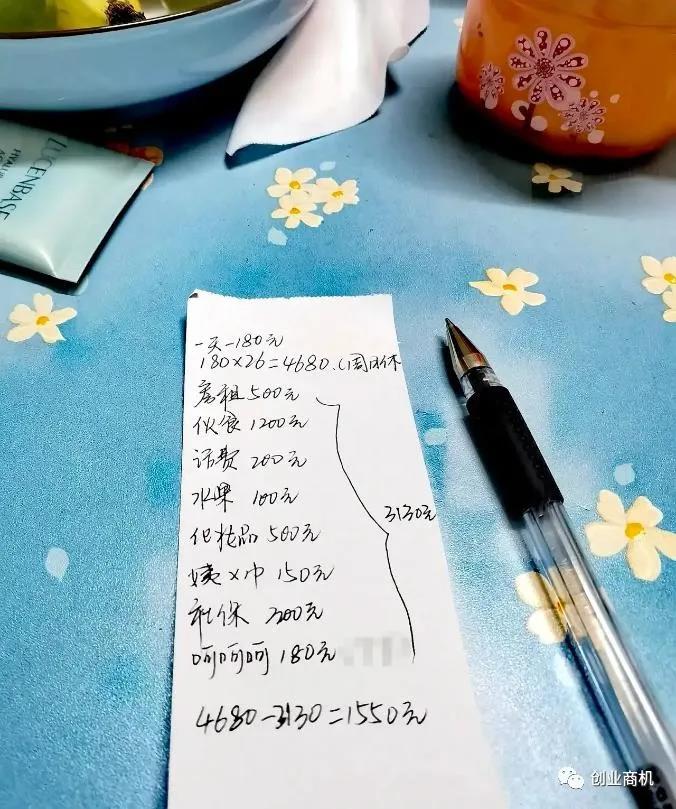 LUCENBASE
HYALUR
一天-180元
180×26=4680.(周日休
房租500元
伙食1200元
话费200元
水果100元
化妆品500元
姨×巾150元
社保 300元
呵呵呵180元
3130元
4680-3130=1550元
创业商机